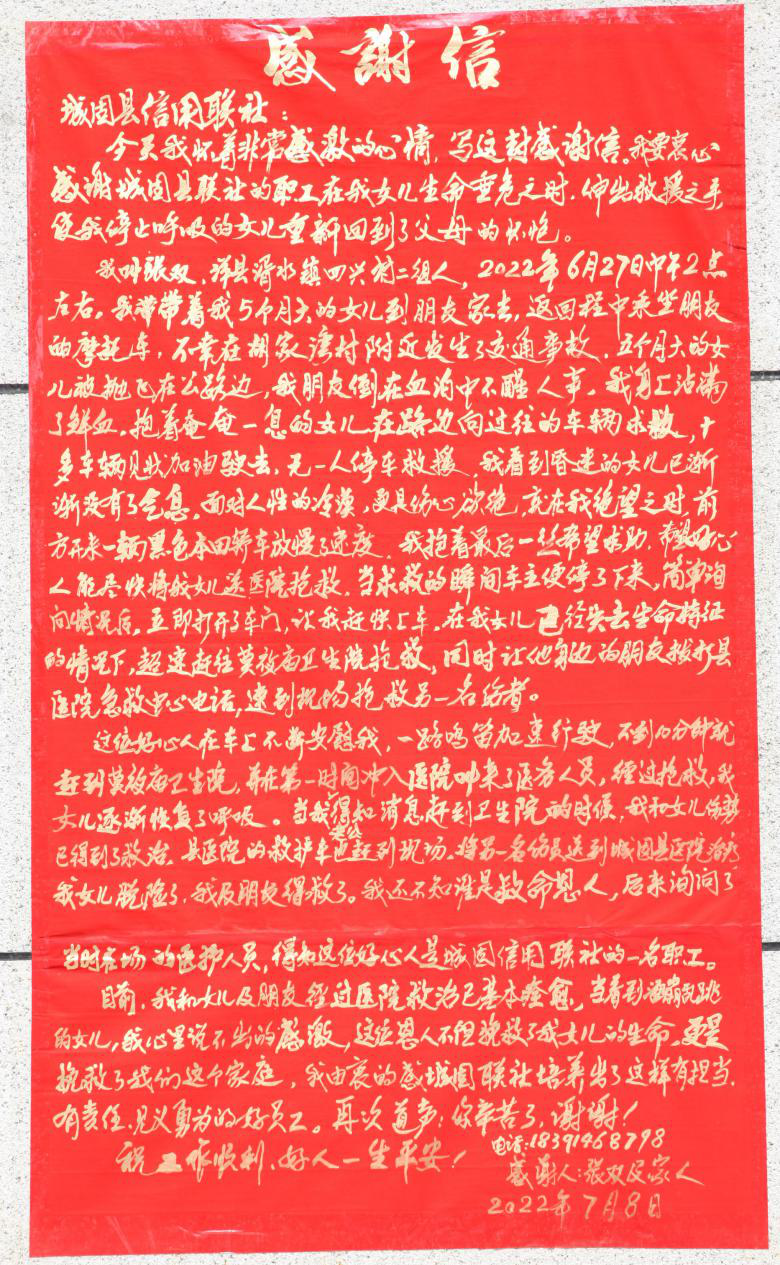 感謝信
城固县信用联社：
今天我怀着非常感激的心情，写这封感谢信。我要衷心
感谢城固县联社的职工在我女儿生命垂危之时，伸出救援之手，
使我停止呼吸的女儿重新回到了父母的怀抱。
我叫张双，洋县溢水镇四兴村二组人，2022年6月27日中午2点
左右。我带带着我5个月大的女儿到朋友家去，返回程中乘坐朋友
的摩托车，不幸在胡家湾村附近发生了交通事故，五个月大的女
儿被抛飞在公路边，我朋友倒在血泊中不醒人事，我身上沾满
了鲜血，抱着奄奄一息的女儿在路边向过往的车辆求救，十
多车辆见状加油驶去，无一人停车救援，我看到昏迷的女儿已渐
渐没有了气息，面对人性的冷漠，更是伤心欲绝，就在我绝望之时，前
方开来一辆黑色本田轿车放慢了速度，我抱着最后一丝希望求助，希望好心
人能尽快将我女儿送医院抢救，当求救的瞬间车主便停了下来，简单询
问情况后，立即打开了车门，让我赶快上车。在我女儿已经失去生命特征
的情况下，超速赶往莫爷庙卫生院抢救，同时让他身边的朋友拨打县
医院急救中心电话，速到现场抢救另一名伤者。
这位好心人在车上不断安慰我，一路鸣笛加速行驶，不到10分钟就
赶到莫爷庙卫生院，并在第一时间冲入医院叫来了医务人员，经过抢救，我
女儿逐渐恢复了呼吸。当我得知消息赶到卫生院的时候，我和女儿
已得到了救治，县医院的救护车也赶到现场，将另一名伤员送到城固县医院治疗
我女儿脱险了，我及朋友得救了。我还不知谁是救命恩人，后来询问了
当时在场的医护人员，得知这位好心人是城固信用联社的一名职工。
目前，我和女儿及朋友经过医院救治已基本痊愈，当看到活蹦乱跳
的女儿，我心里说不出的感激，这位恩人不但挽救了我女儿的生命，更是
挽救了我们这个家庭，我由衷的感城固联社培养出了这样有担当、
有责任、见义勇为的好员工。再次道声：你辛苦了，谢谢！
祝工作顺利，好人一生平安！
电话：18391468798
感谢人：张双及家人
2022年7月8日